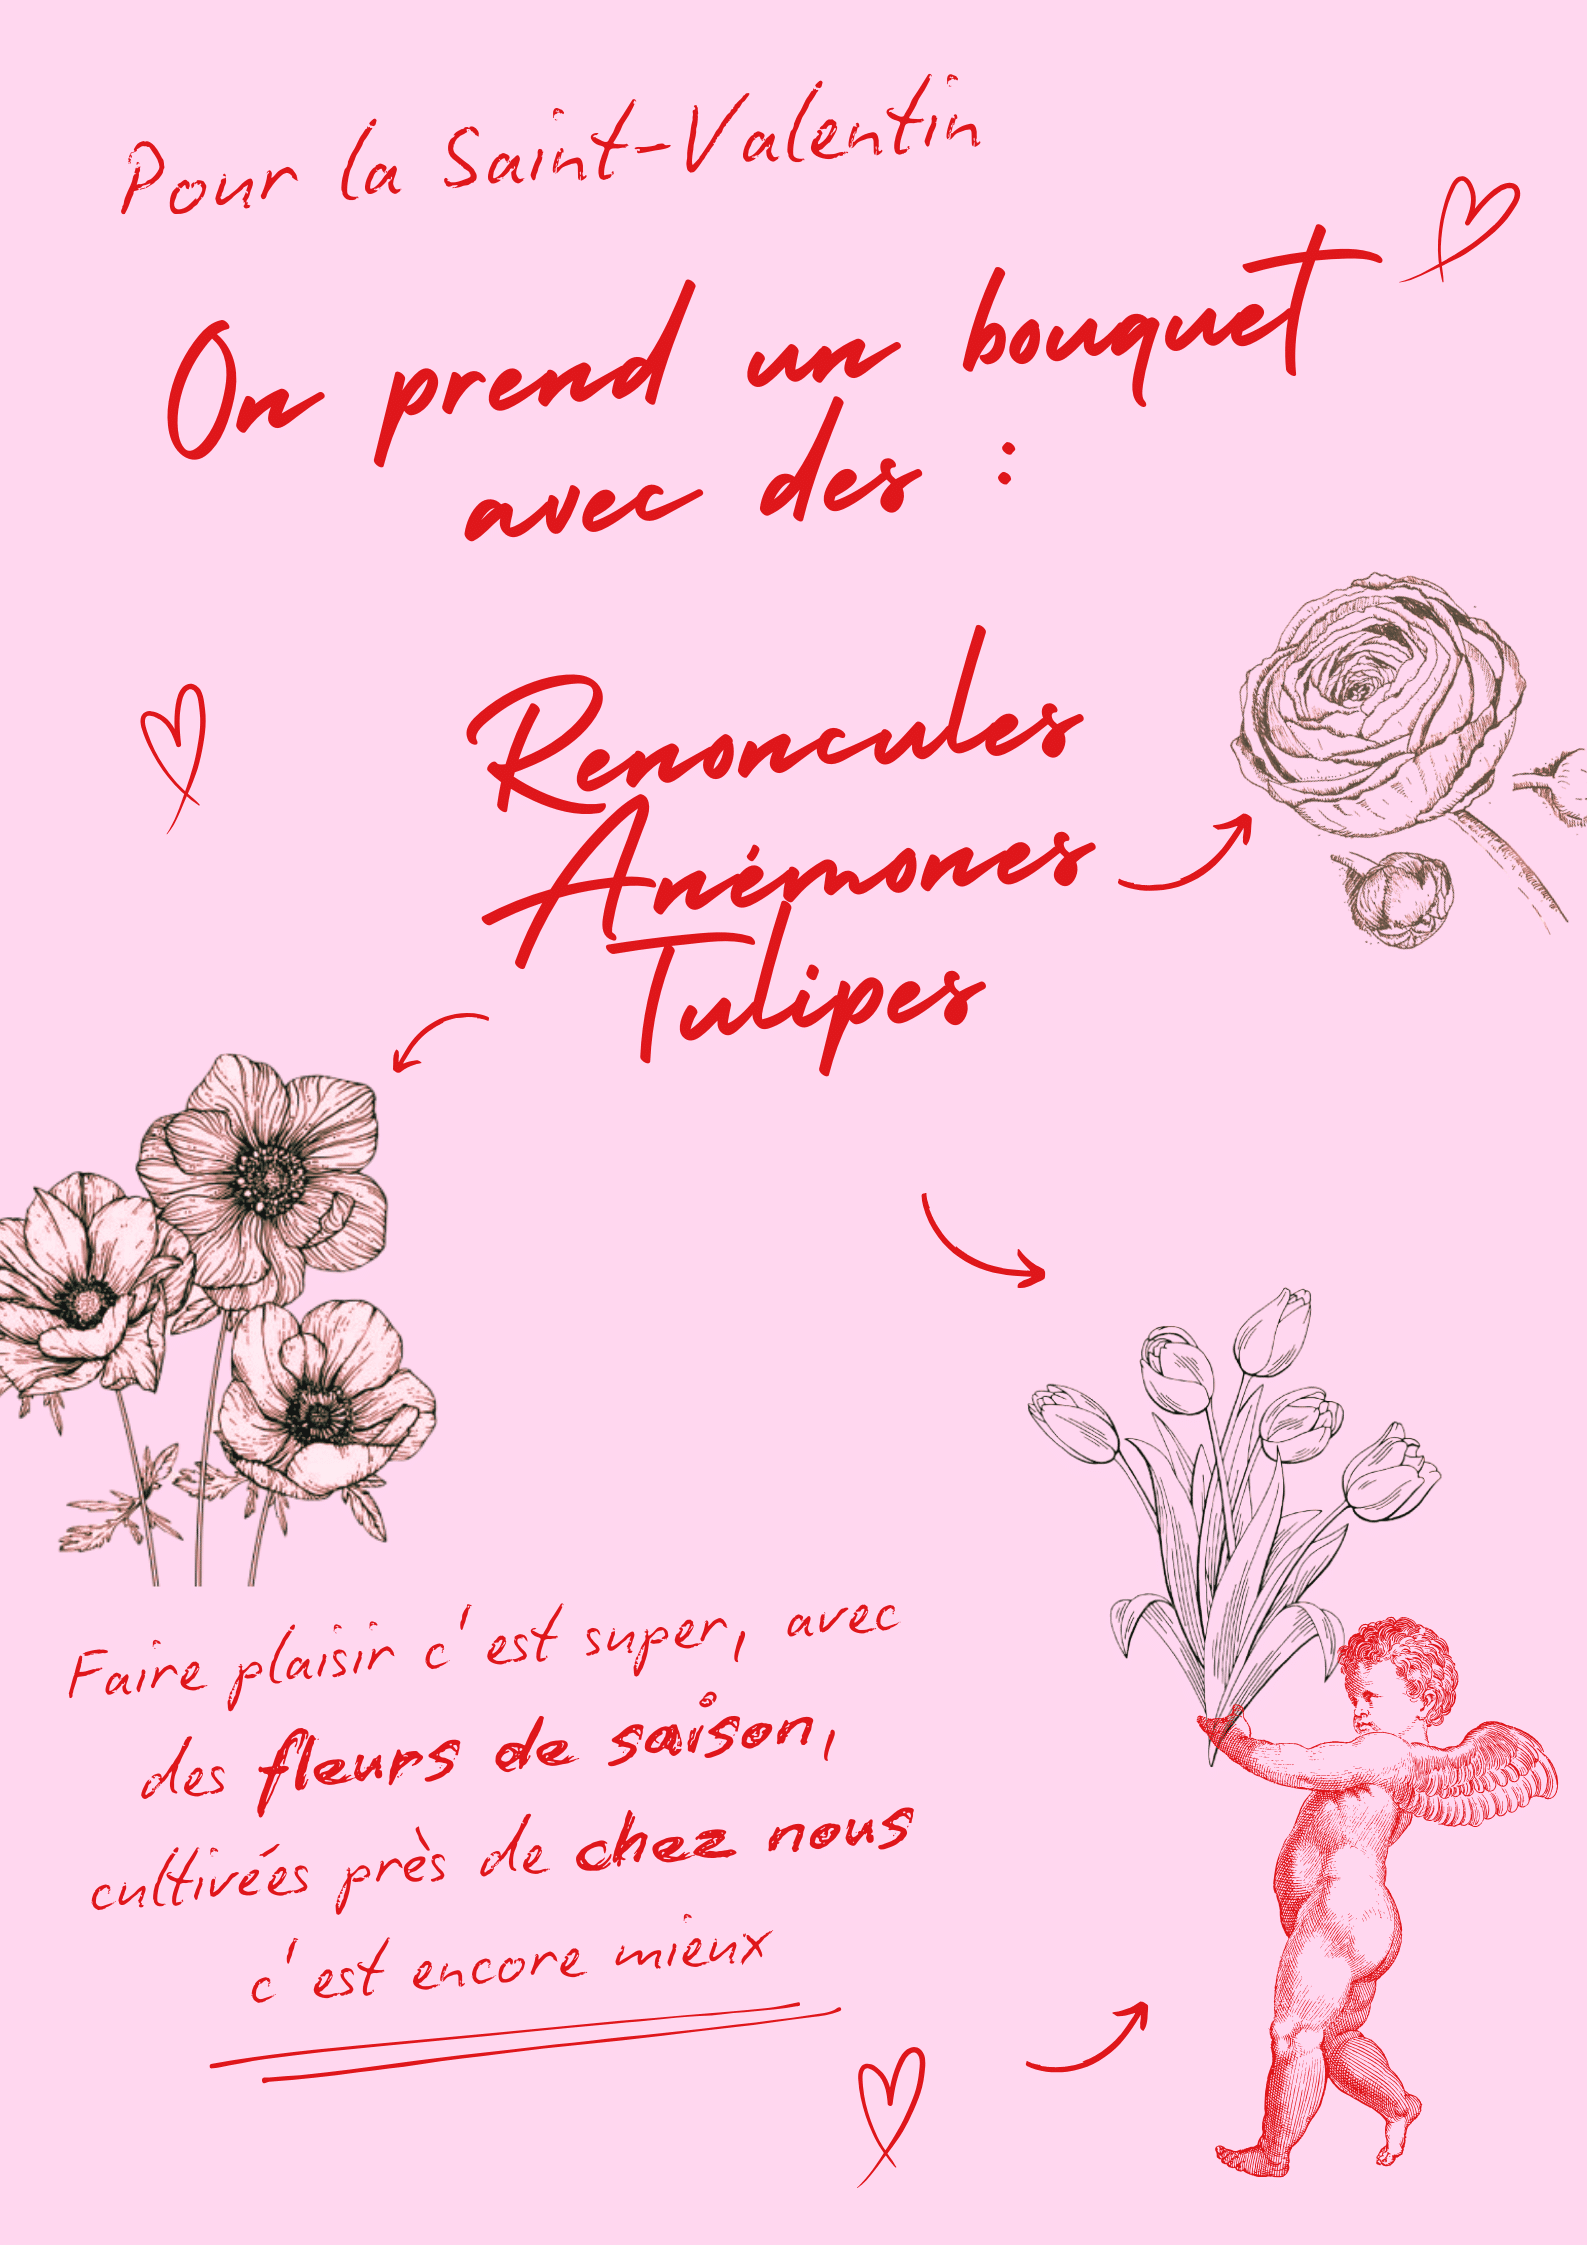 Pour la Saint-Valentin
On prend un bouquet
avec des :
Renoncules
Anémones
Tulipes
Faire plaisir c'est super, avec
des fleurs de saison,
cultivées près de chez nous
c'est encore mieux